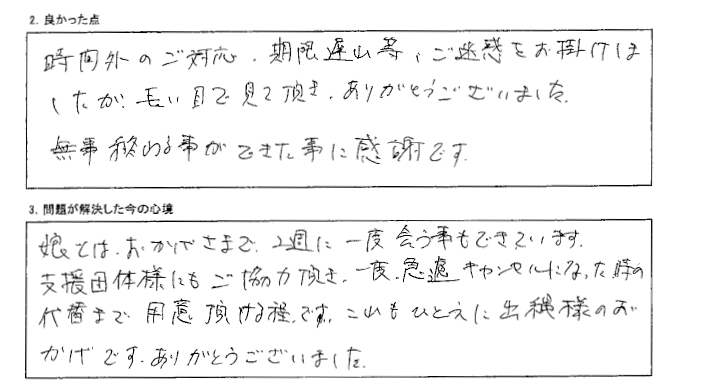 2. 良かった点
時間外のご対応、期限遅れ等、ご迷惑をお掛けしま
したが、長い目で見て頂き、ありがとうございました。
無事終わる事ができた事に感謝です。
3. 問題が解決した今の心境
娘とは、おかげさまで、2週に一度会う事もできています。
支援団体様にもご協力頂き、一度、急遽キャンセルになった時の
代替まで用意頂ける程です。これもひとえに出穂様のお
かげです。ありがとうございました。